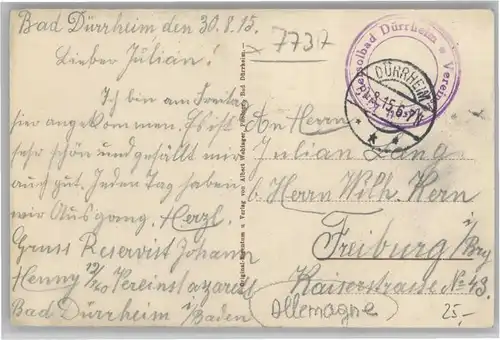 Bad Dürrheim den 30.8.15.
Lieber Julian!
Ich bin am Freitag
hier angekommen. Es ist
sehr schön und gefällt mir
auch gut. Jeden Tag haben
wir Ausgang. Herzl.
Gruss Reservist Johann
Henny 12/20 Vereinslazarett
Bad Dürrheim i/Baden
x 7737
Dürrheim * Verein
DÜRRHEIM
An Herrn
Julian Lang
b. Herrn Wilh. Kern
Freiburg i/Brg
Kaiserstrasse No 43.
Allemagne
25.-
Verlag von Albert Wehinger, Bad Dürrheim.